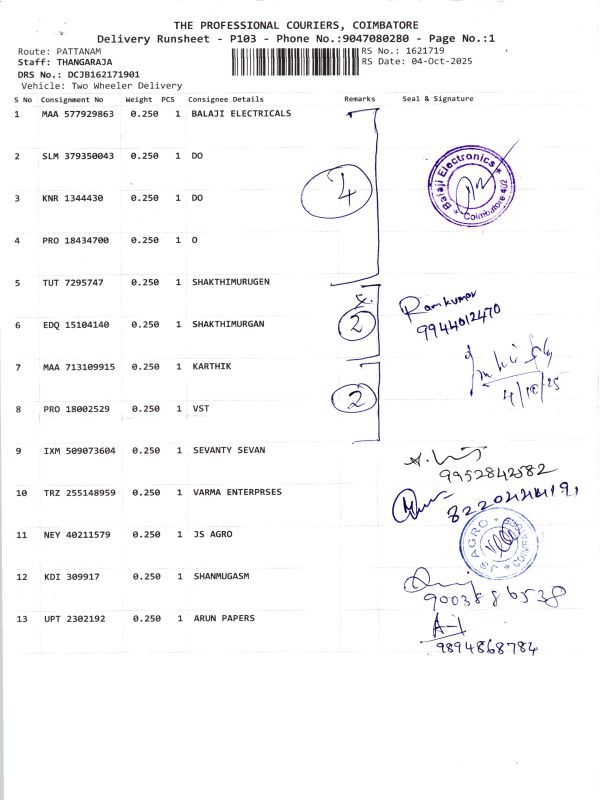 THE PROFESSIONAL COURIERS, COIMBATORE
Delivery Runsheet - P103 - Phone No.:9047080280 - Page No.:1
Route: PATTANAM RS No.: 1621719
Staff: THANGARAJA RS Date: 04-Oct-2025
DRS No.: DCJB162171901
Vehicle: Two Wheeler Delivery
S No Consignment No Weight PCS Consignee Details Remarks Seal & Signature
1 MAA 577929863 0.250 1 BALAJI ELECTRICALS
2 SLM 379350043 0.250 1 DO
Balaji Electronics * Coimbatore 402 *
3 KNR 1344430 0.250 1 DO 4
4 PRO 18434700 0.250 1 O
5 TUT 7295747 0.250 1 SHAKTHIMURUGEN
Ramkumar
9944012470
6 EDQ 15104140 0.250 1 SHAKTHIMURGAN 2
7 MAA 713109915 0.250 1 KARTHIK
4/10/25
2
8 PRO 18002529 0.250 1 VST
9 IXM 509073604 0.250 1 SEVANTY SEVAN
9952842582
10 TRZ 255148959 0.250 1 VARMA ENTERPRSES
11 NEY 40211579 0.250 1 JS AGRO
JS AGRO
12 KDI 309917 0.250 1 SHANMUGASM
9003886538
13 UPT 2302192 0.250 1 ARUN PAPERS
A-1
9894868784